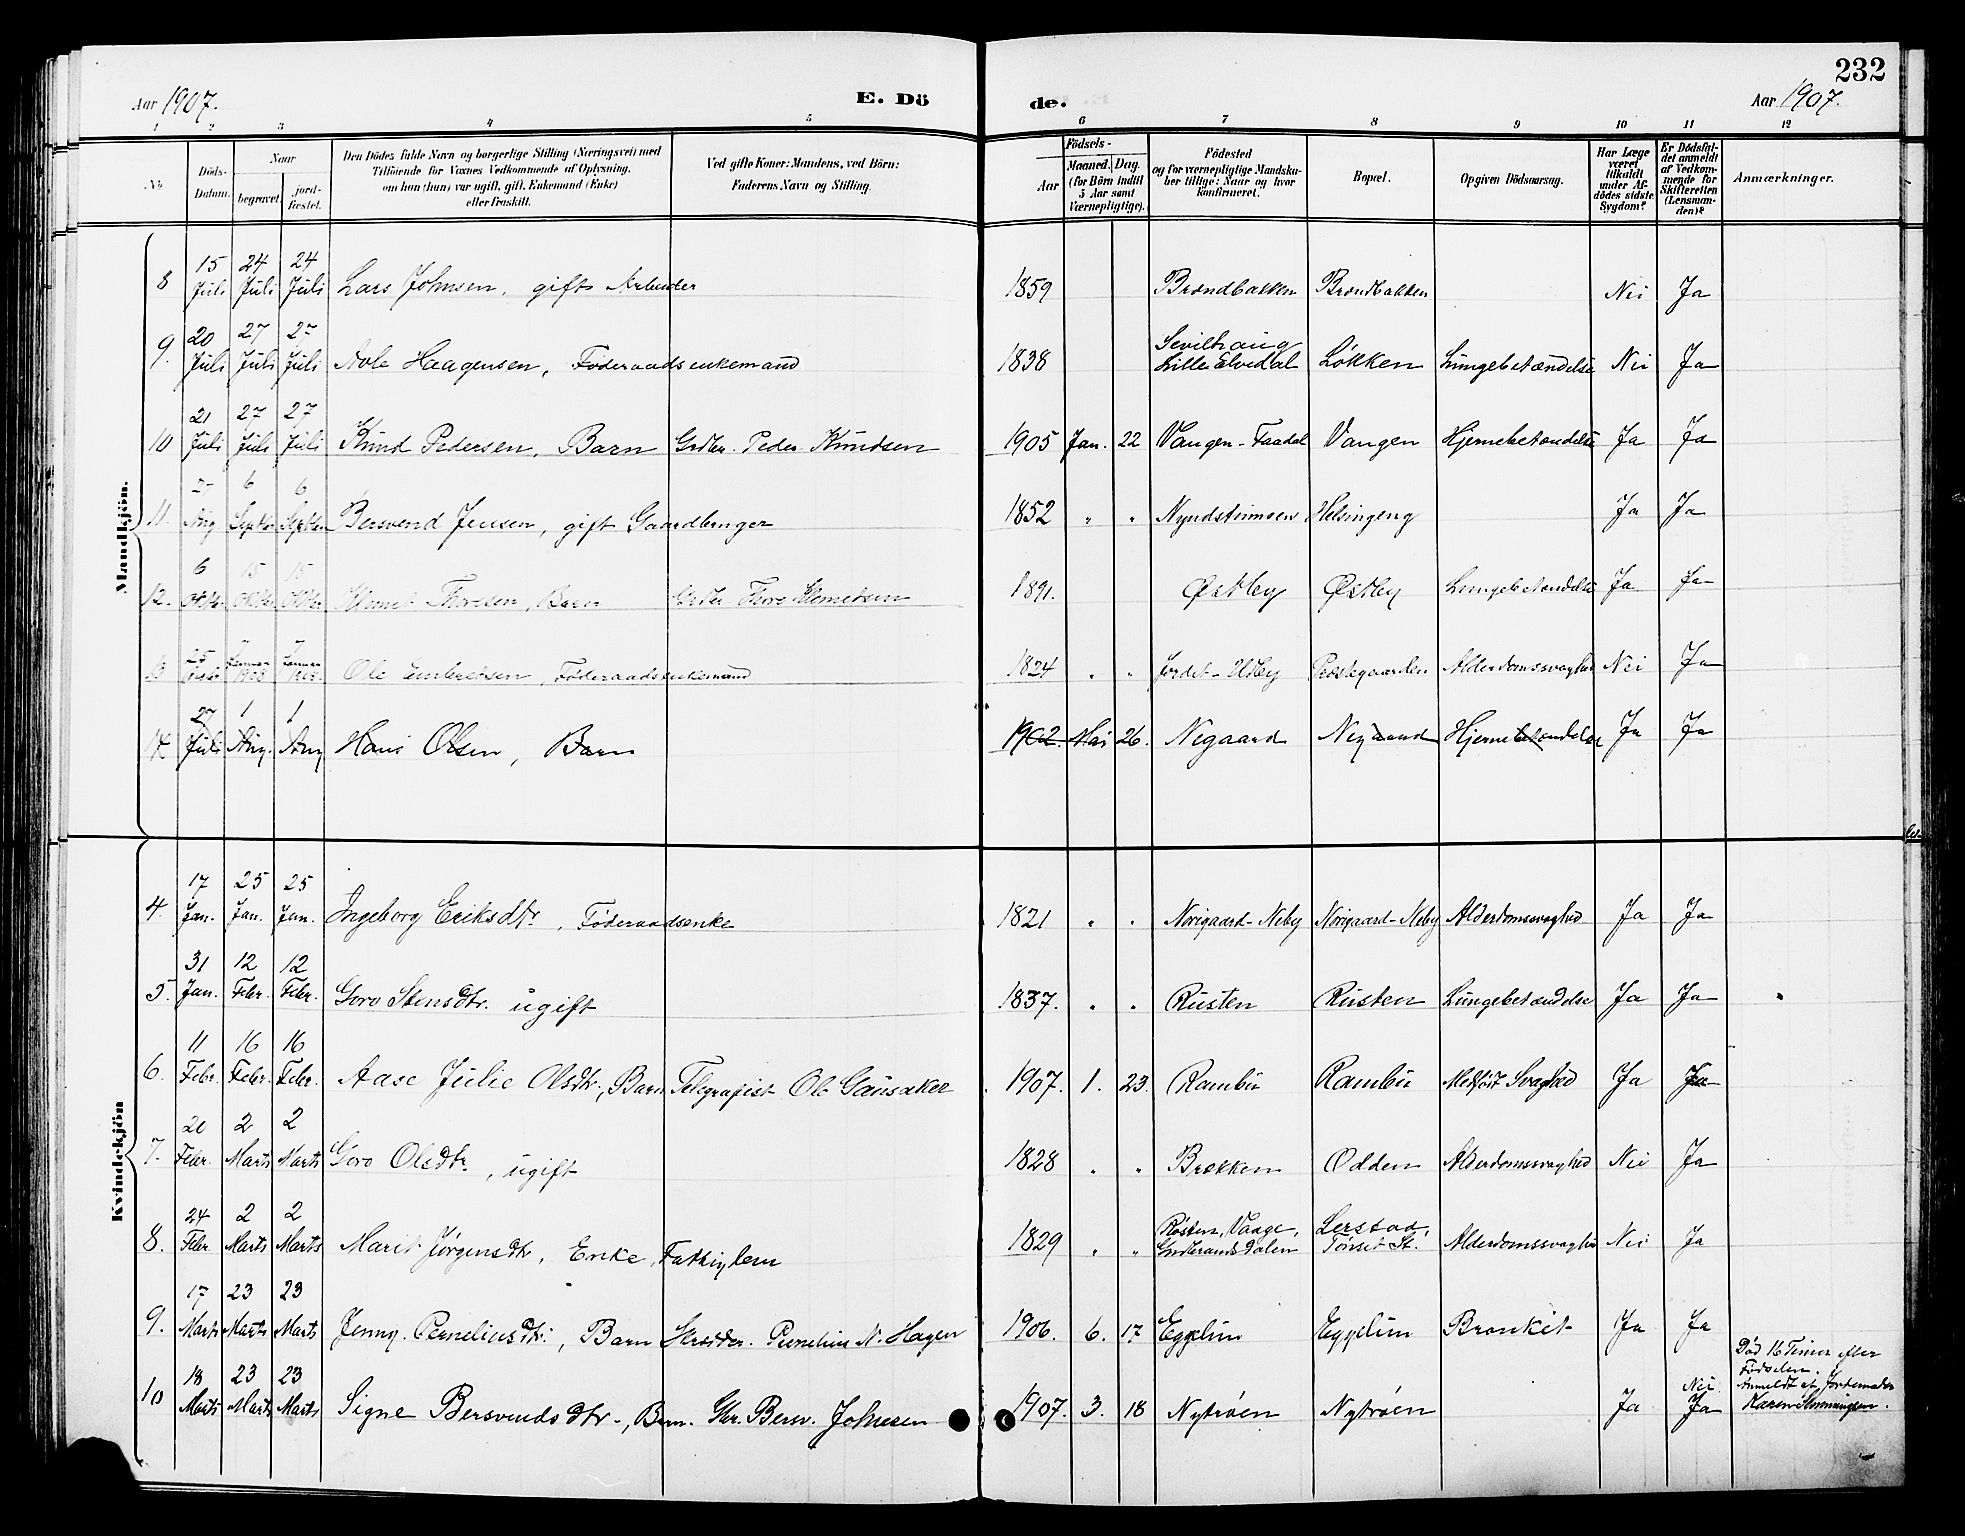 232
Aar 1907. E. Dö de. Aar 1907.
1 2 3 4 5 6 7 8 9 10 11 12
No. Döds-Datum. Naar begravet. jord-fæstet. Den Dödes fulde Navn og borgerlige Stilling (Næringsvei) med Tilföiende för Voxnes Vedkommende af Oplysning, om han (hun) var ugift, gift, Enkemand (Enke) eller fraskilt. Ved gifte Koner: Mandens, ved Börn: Faderens Navn og Stilling. Födsels- Aar Maaned. Dag. (for Börn indtil 5 Aar samt Værnepligtige). Födested og for værnepligtige Mandskaber tillige: Naar og hvor konfirmeret. Bopæl. Opgiven Dödsaarsag. Har Læge været tilkaldt under Afdödes sidste Sygdom? Er Dödsfaldet anmeldt af Vedkommende for Skifteretten (Lensmanden)? Anmærkninger.
Mandkjön.
8 15 Juli 24 Juli 24 Juli Lars Johnsen, gift Arbeider 1859 Brændbakken Brændbakken Nei Ja
9. 20 Juli 27 Juli 27 Juli Haagensen, Føderaadsenkemand 1838 Lille Elvedal Løkken Lungebetændelse Nei Ja
10 21 Juli 27 Juli 27 Juli Knud Pedersen, Barn Grdbr. Peder Knudsen 1905 Jan. 22 Vangen-Faadal Vangen Hjernebetændelse Ja Ja
11. Aug 6 Septbr 6 Septbr Bersvend Jensen, gift Gaardbruger 1852 " " Helsingeng Ja Ja
12. 6 Oktbr 15 Oktbr 15 Oktbr Thoresen, Barn Grdbr. Thore Klemetsen 1891. Østby Østby Lungebetændelse Ja Ja
13 25 Januar 1908 Januar 1908 Ole Embretsen, Føderaadsenkemand 1824 " " Jordet-Utby Præstegaarden Alderdomssvaghed Nei Ja
14 27 Juli 1 Aug. 1 Aug Hans Olsen, Barn 1902. Mai 26. Negaard Negaard Hjernebetændelse Ja Ja
Kvindekjön
4. 17 Jan. 25 Jan. 25 Jan. Ingeborg Eriksdtr., Føderaadsenke 1821 " " Norigaard-Neby Norigaard-Neby Alderdomssvaghed Ja Ja
5. 31 Jan. 12 Febr. 12 Febr. Goro Stensdtr. ugift 1837. " " Rusten Rusten Lungebetændelse Ja Ja "
6. 11 Febr. 16 Febr. 16 Febr. Aase Julie Olsdtr., Barn Telegrafist Ole Gausaker 1907. 1. 23. Rambu Rambu Medfødt Svaghed Ja Ja
7. 20 Febr. 2 Marts 2 Marts Goro Olsdtr., ugift 1828 " " Brekken Odden Alderdomssvaghed Nei Ja
8. 24 Febr. 2 Marts 2 Marts Marit Jørgensdtr, Enke, Fattiglem 1829 " " Vaage, Gudbrandsdalen Tønset St. Alderdomssvaghed Nei Ja
9. 17 Marts 23 Marts 23 Marts Jenny Perneliusdtr., Barn Skrædder. Pernelius N. Hagen 1906. 6. 17 Eggelim Eggelim Bronkit Ja Ja
10 18 Marts 23 Marts 23 Marts Signe Bersvendsdtr., Barn. Gbr. Bersv. Johnsen 1907. 3. 18 Nytrøen Nytrøen Ja Nei Ja Død 16 Timer efter Fødselen. Anmeldt af Jordemoder Karen